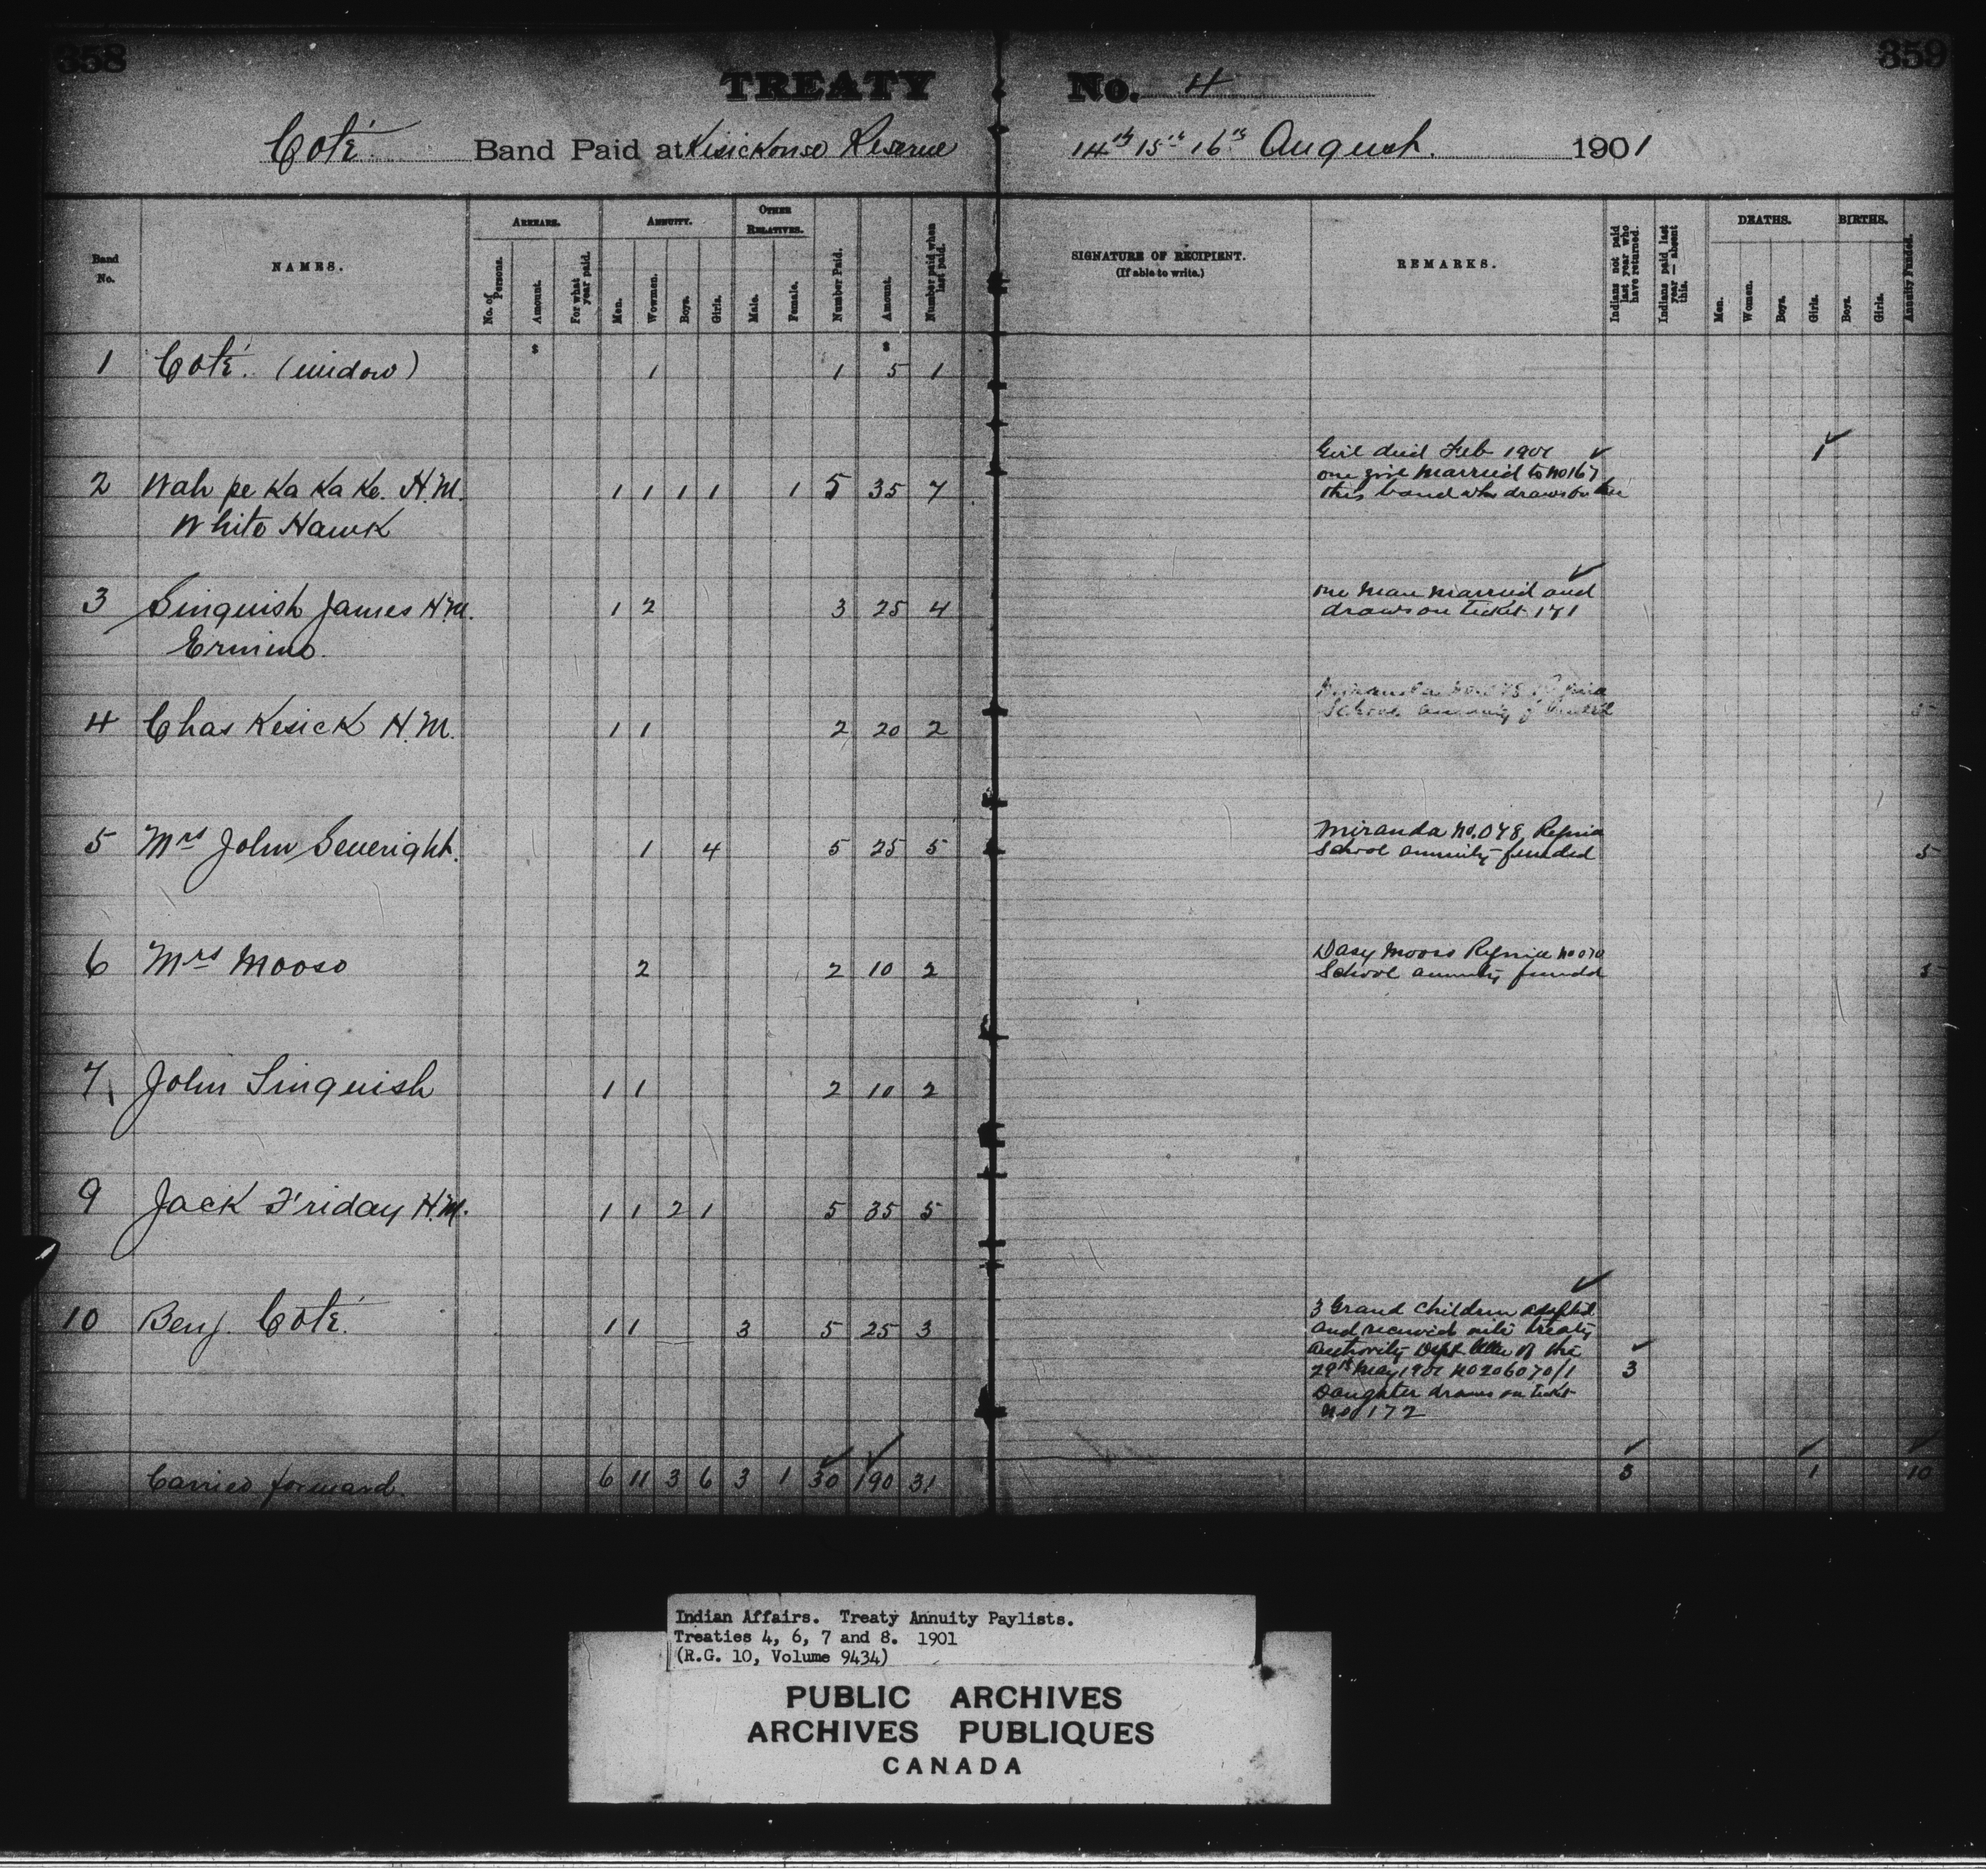 358
359
TREATY No. 4
Coté Band Paid at Kisickonse Reserve 14th 15th 16th August. 1901
Band No.
NAMES.
ARREARS.
No. of Persons.
Amount.
For what year paid.
ANNUITY.
Men.
Women.
Boys.
Girls.
OTHER RELATIVES.
Male.
Female.
Number Paid.
Amount.
Number paid when last paid.
SIGNATURE OF RECIPIENT.
(If able to write.)
REMARKS.
Indians not paid last year who have returned.
Indians paid last year — absent this.
DEATHS.
Men.
Women.
Boys.
Girls.
BIRTHS.
Boys.
Girls.
Annuity Funded.
$ $
1 Coté. (widow) 1 1 5 1
Girl died Feb 1901 1
one girl married to no 167
2 Wah pe Ka Ka Ke. H.M. 1 1 1 1 1 5 35 7 this band who draws for her
White Hawk
one man married and
3 Sinquish James H.M. 1 2 3 25 4 draws on ticket 171
Ermine.
School annuity funded 5
4 Chas Kesick H.M. 1 1 2 20 2
Miranda No. 078 Regina
5 Mrs John Severight. 1 4 5 25 5 School annuity funded 5
Dasy Mooso Regina no 070
6 Mrs Mooso 2 2 10 2 School annuity funded 5
7 John Sinquish 1 1 2 10 2
9 Jack Friday H.M. 1 1 2 1 5 35 5
3 Grand children adopted
10 Benj. Coté. 1 1 3 5 25 3 and received into treaty
authority Dept letter of the
29th May 1901 no 206070/1 3
Daughter draws on ticket
no 172
Carried forward. 6 11 3 6 3 1 30 190 31 3 1 10
Indian Affairs. Treaty Annuity Paylists.
Treaties 4, 6, 7 and 8. 1901
(R.G. 10, Volume 9434)
PUBLIC ARCHIVES
ARCHIVES PUBLIQUES
CANADA